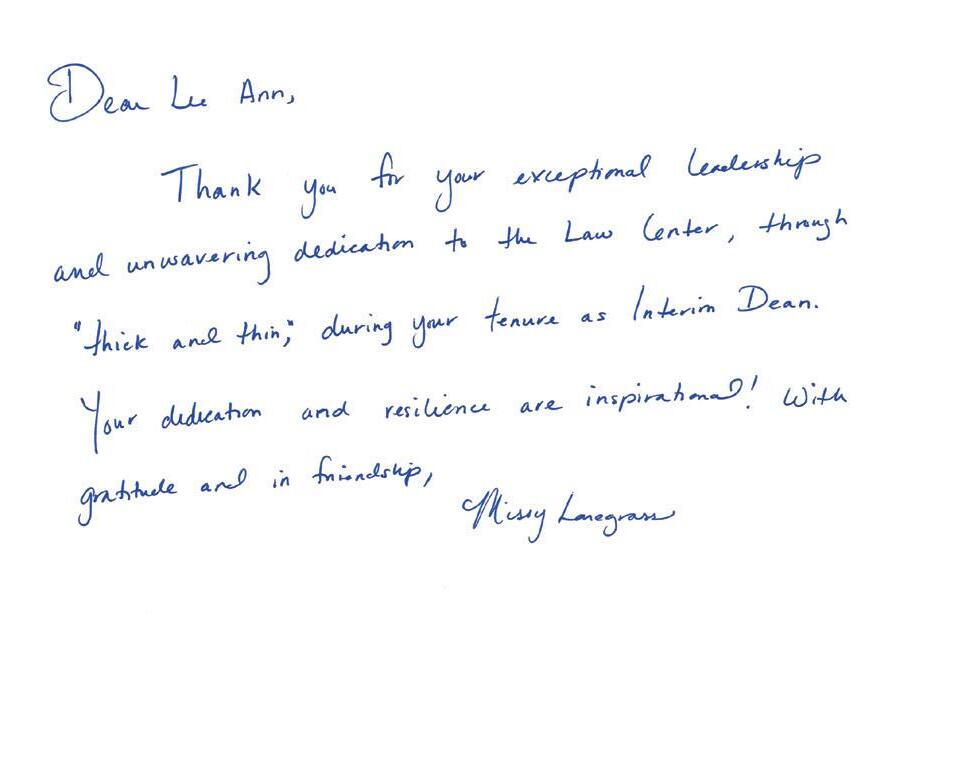 Dear Lee Ann,
Thank you for your exceptional leadership
and unwavering dedication to the Law Center, through
"thick and thin," during your tenure as Interim Dean.
Your dedication and resilience are inspirational! With
gratitude and in friendship,
Missy Lonegrass